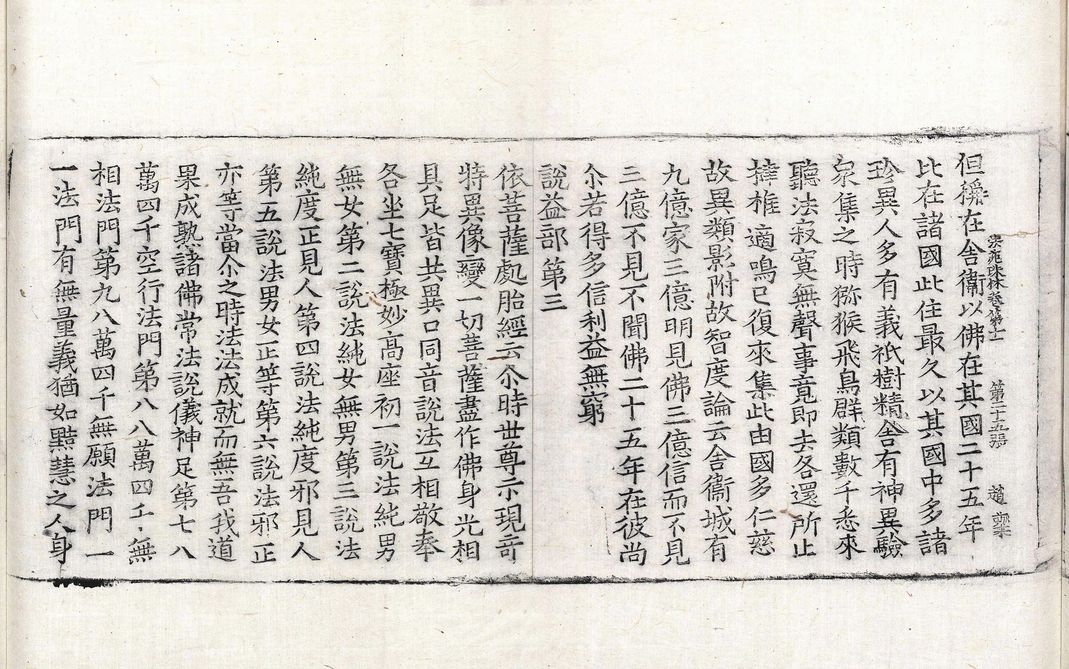 法苑珠林卷第十二 第二十五張
但稱在舍衛以佛在其國二十五年
比在諸國此住最久以其國中多諸
珍異人多有義祇樹精舍有神異驗
眾集之時獼猴飛鳥群類數千悉來
聽法寂寞無聲事竟即去各還所止
揵椎適鳴已復來集此由國多仁慈
故異類影附故智度論云舍衛城有
九億家三億明見佛三億信而不見
三億不見不聞佛二十五年在彼尚
尒若得多信利益無窮
說益部第三
依菩薩處胎經云尒時世尊示現奇
特異像變一切菩薩盡作佛身光相
具足皆共異口同音說法互相敬奉
各坐七寶極妙高座初一說法純男
無女第二說法純女無男第三說法
純度正見人第四說法純度邪見人
第五說法男女正等第六說法邪正
亦等當尒之時法法成就而無吾我道
果成熟諸佛常法說儀神足第七八
萬四千空行法門第八八萬四千無
相法門第九八萬四千無願法門一
一法門有無量義猶如黠慧之人身